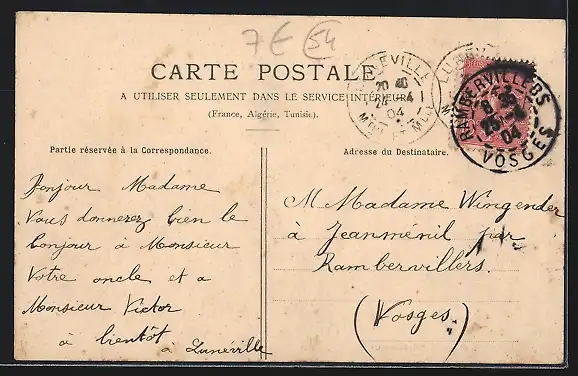 7E 54
CARTE POSTALE
A UTILISER SEULEMENT DANS LE SERVICE INTÉRIEUR
(France, Algérie, Tunisie).
LUNEVILLE
20 40
24 - 4
04
MTHE ET MLLE
RAMBERVILLERS
04
VOSGES
Partie réservée à la Correspondance.
Adresse du Destinataire.
Bonjour Madame
Vous donnerez bien le
bonjour a Monsieur
Votre oncle et a
Monsieur Victor
a bientôt
a Lunéville
M Madame Wingender
à Jeanménil par
Rambervillers.
(Vosges)